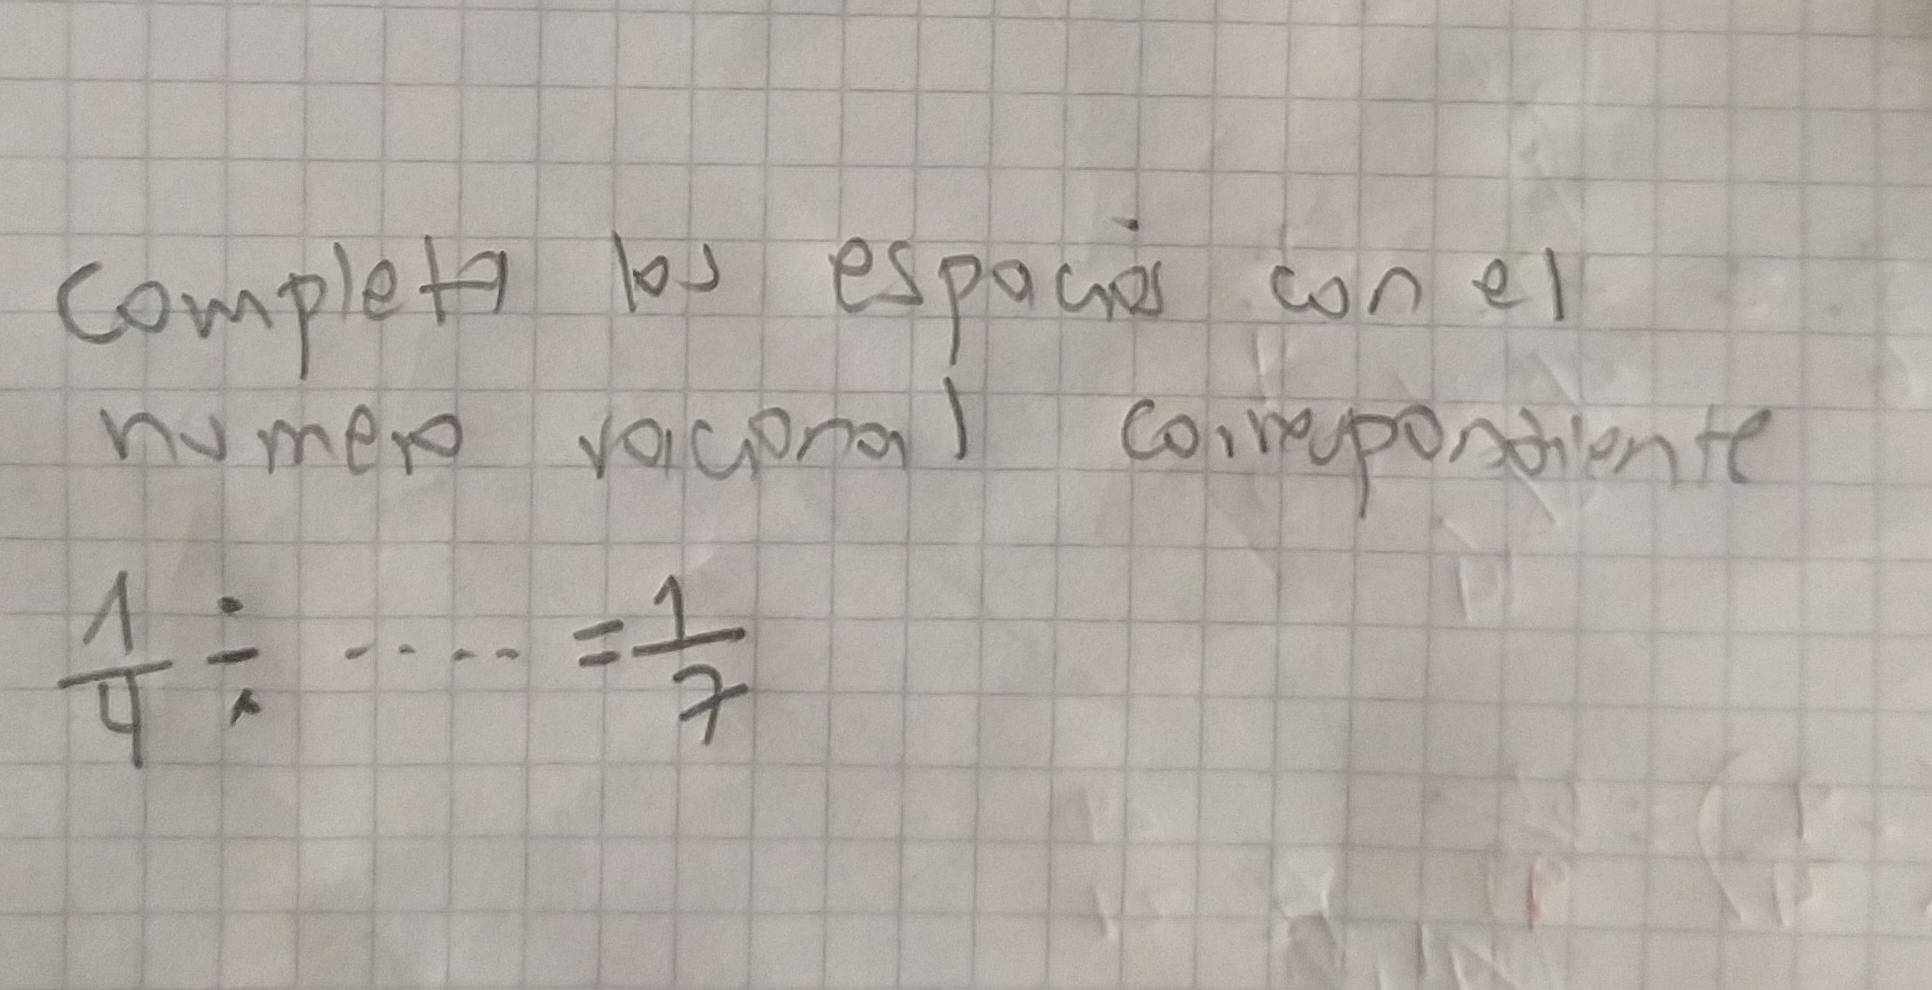 Completa los espacios con el
numero racional correspondiente
1/4 ÷ ..... = 1/7